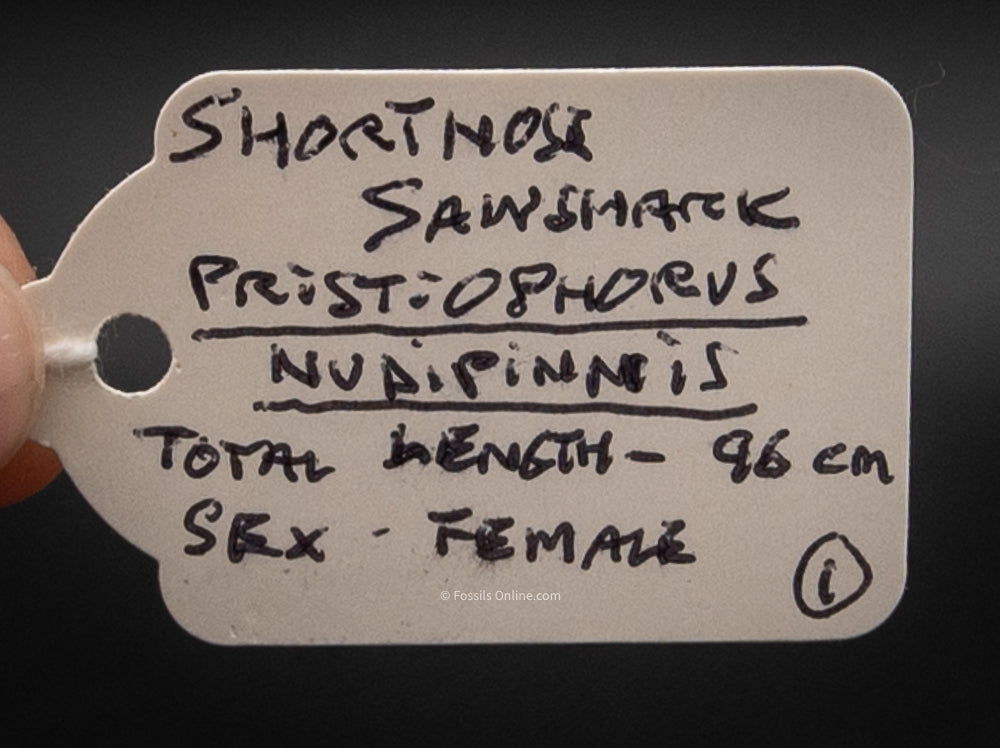 SHORTNOSE
SAWSHARK
PRISTIOPHORUS
NUDIPINNIS
TOTAL LENGTH - 96 cm
SEX - FEMALE
1
© Fossils Online.com